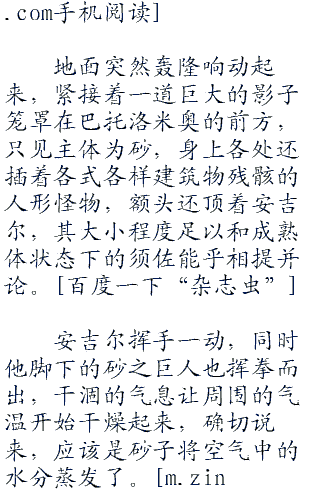 .com手机阅读]
地面突然轰隆响动起
来，紧接着一道巨大的影子
笼罩在巴托洛米奥的前方，
只见主体为砂，身上各处还
插着各式各样建筑物残骸的
人形怪物，额头还顶着安吉
尔，其大小程度足以和成熟
体状态下的须佐能乎相提并
论。[百度一下“杂志虫”]
安吉尔挥手一动，同时
他脚下的砂之巨人也挥拳而
出，干涸的气息让周围的气
温开始干燥起来，确切说
来，应该是砂子将空气中的
水分蒸发了。[m.zin